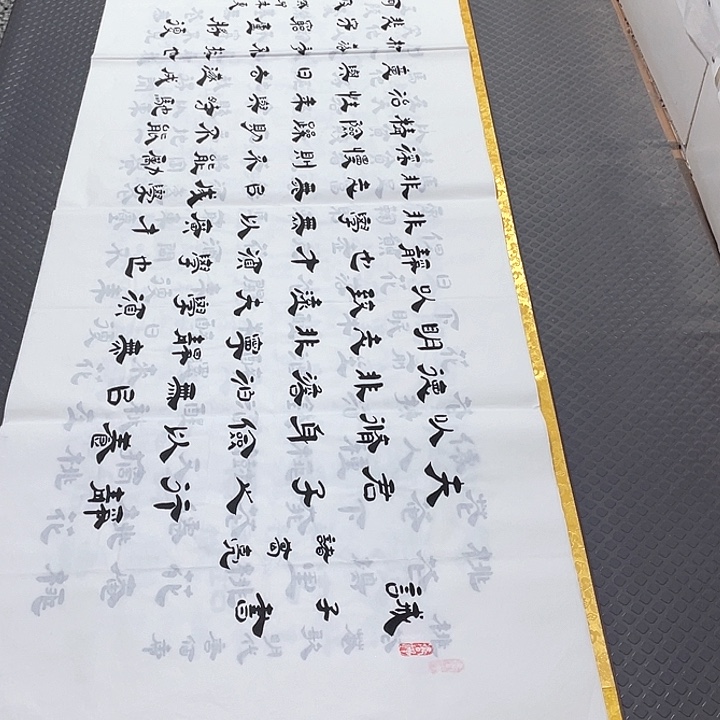 誡子書
諸葛亮
夫君子之行靜
以脩身儉以養
德非澹泊無以
明志非寧靜無
以致遠夫學須
靜也才須學也
非學無以廣才
非志無以成學
慢則不能勵
精險躁則不能
冶性年與時馳
意與日去遂成
枯落多不接世
悲守窮廬將復
何